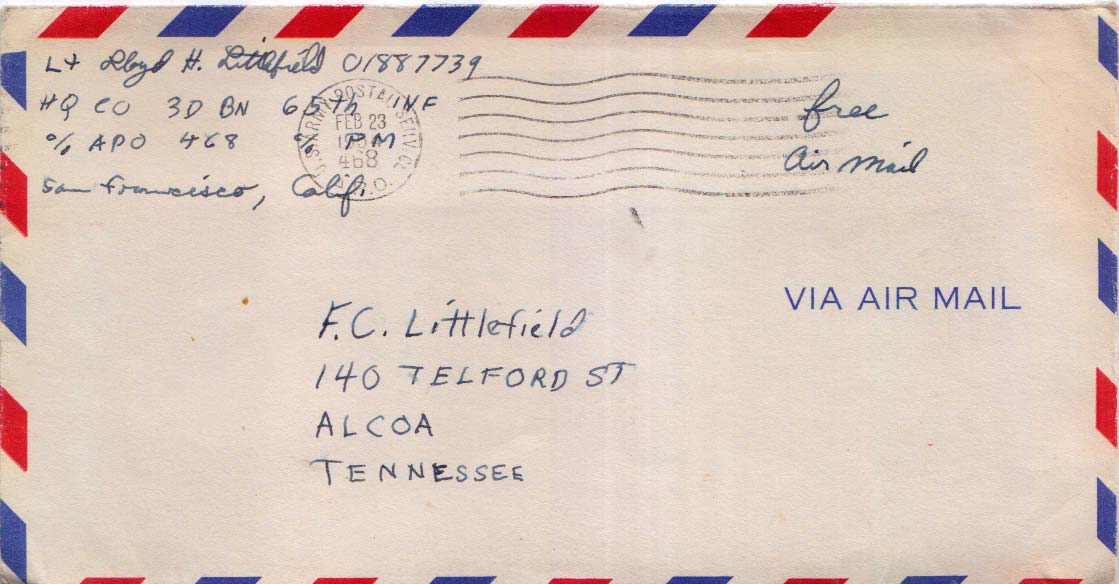 Lt Lloyd H. Littlefield 01887739
HQ CO 3D BN 65th INF
℅ APO 468 ℅ PM
San Francisco, Calif.
U.S. ARMY POSTAL SERVICE
FEB 23
468
A.P.O.
free
Air Mail
VIA AIR MAIL
F.C. Littlefield
140 TELFORD ST
ALCOA
TENNESSEE